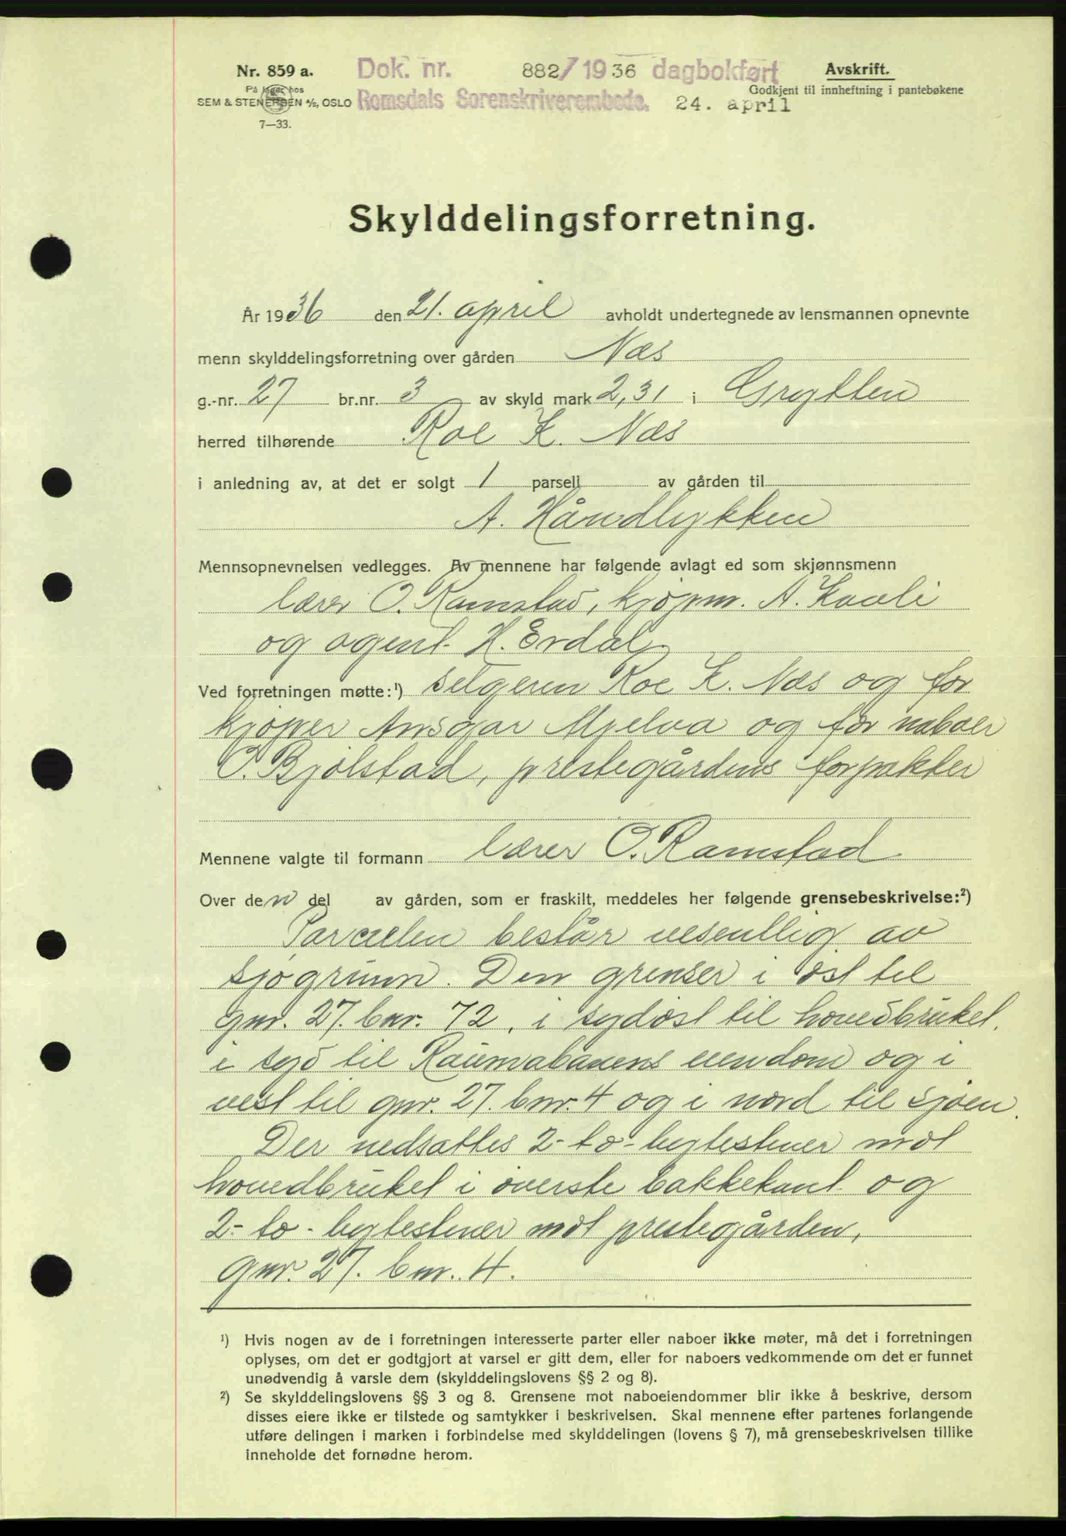 Nr. 859 a.
På lager hos
SEM & STENERSEN A/S, OSLO
7—33.
Dok. nr. 882/1936 dagbokført
Romsdals Sorenskriverembede. 24. april
Avskrift.
Godkjent til innheftning i pantebøkene
Skylddelingsforretning.
År 1936 den 21. april avholdt undertegnede av lensmannen opnevnte
menn skylddelingsforretning over gården Næs
g.-nr. 27 br.nr. 3 av skyld mark 2,31 i Grytten
herred tilhørende Roe K. Næs
i anledning av, at det er solgt 1 parsell av gården til
A. Håndlykken
Mennsopnevnelsen vedlegges. Av mennene har følgende avlagt ed som skjønnsmenn
lærer O. Ramstad, kjøpm. A. Kavli
og agent H. Erdal,
Ved forretningen møtte:¹) selgeren Roe K. Næs og for
kjøper Ansgar Mjelva og for naboer
O. Bjølstad, prestegårdens forpakter
Mennene valgte til formann lærer O. Ramstad
Over den del av gården, som er fraskilt, meddeles her følgende grensebeskrivelse:²)
Parcelen består vesentlig av
sjøgrunn. Den grenser i øst til
gnr. 27. bnr. 72, i sydøst til hovedbruket,
i syd til Raumabanens eiendom og i
vest til gnr. 27. bnr. 4 og i nord til sjøen.
Der nedsattes 2-to-bytestener mot
hovedbruket i øverste bakkekant og
2-to-bytestener mot prestegården,
gnr. 27. bnr. 4.
¹) Hvis nogen av de i forretningen interesserte parter eller naboer ikke møter, må det i forretningen
oplyses, om det er godtgjort at varsel er gitt dem, eller for naboers vedkommende om det er funnet
unødvendig å varsle dem (skylddelingslovens §§ 2 og 8).
²) Se skylddelingslovens §§ 3 og 8. Grensene mot naboeiendommer blir ikke å beskrive, dersom
disses eiere ikke er tilstede og samtykker i beskrivelsen. Skal mennene efter partenes forlangende
utføre delingen i marken i forbindelse med skylddelingen (lovens § 7), må grensebeskrivelsen tillike
inneholde det fornødne herom.